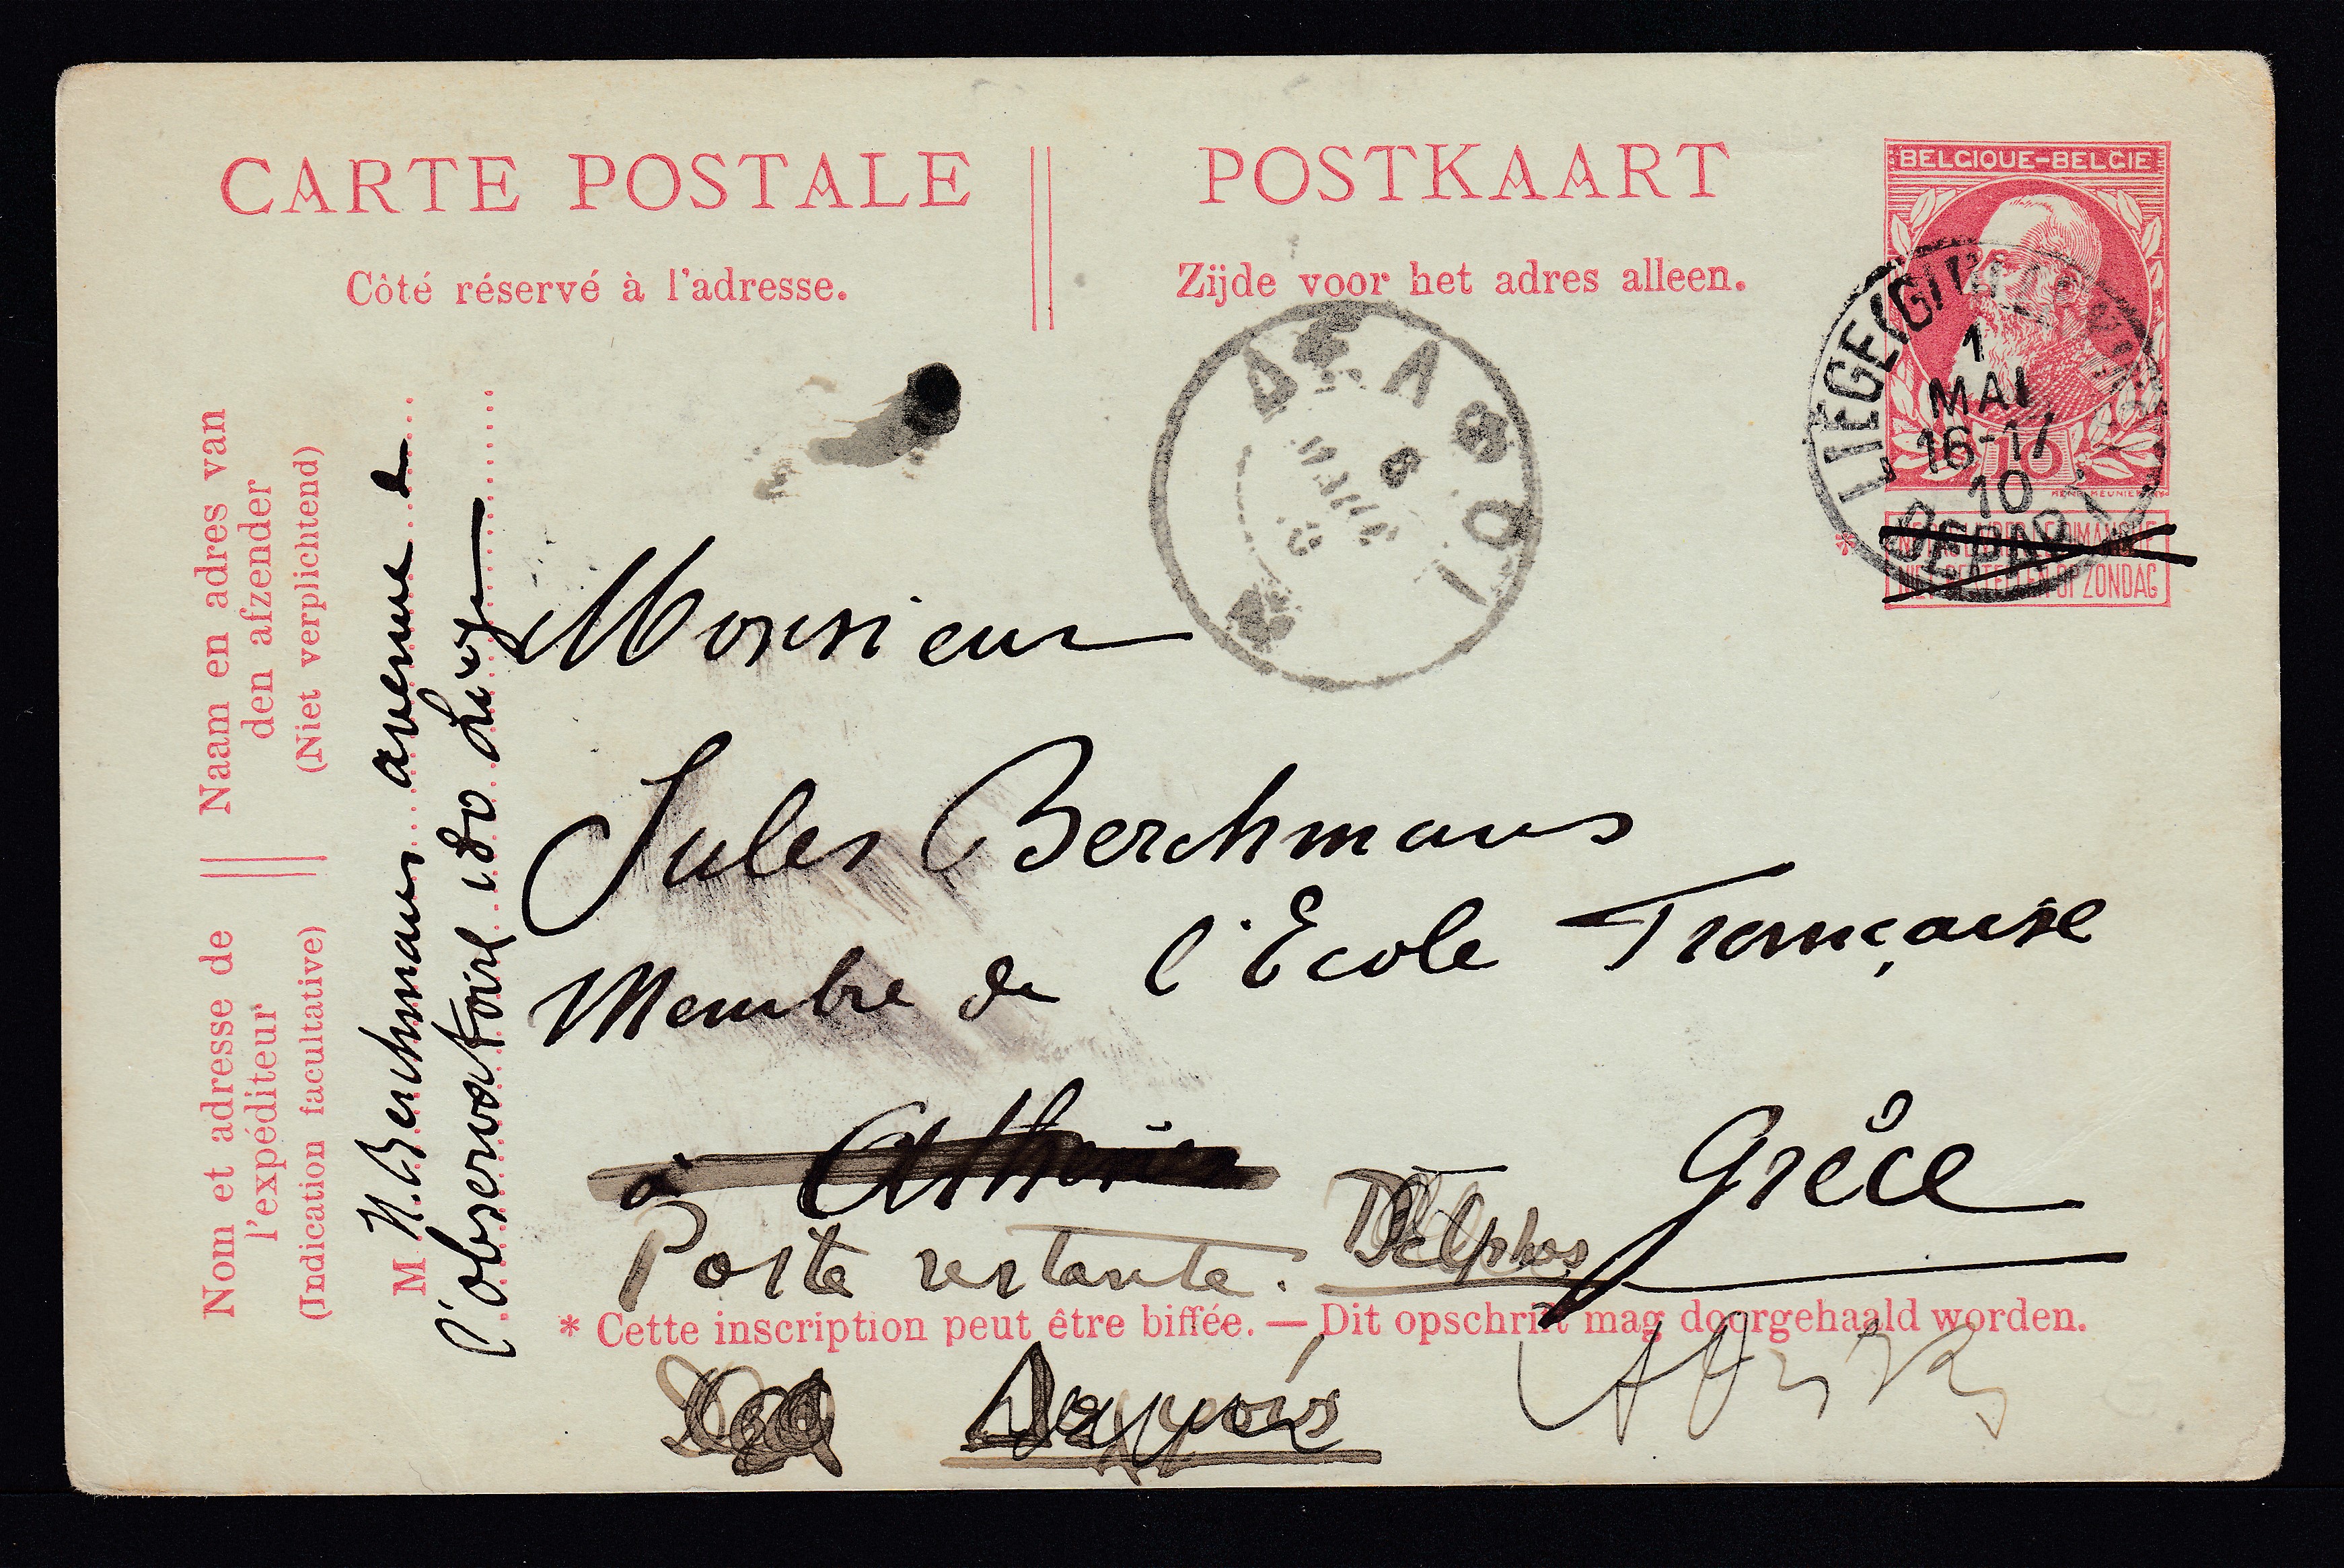 CARTE POSTALE
Côté réservé à l'adresse.
POSTKAART
Zijde voor het adres alleen.
BELGIQUE-BELGIË
10
NE PAS LIVRER LE DIMANCHE
NIET BESTELLEN OP ZONDAG
*
LIEGE (GUILLEMINS)
1
MAI
16-17
10
DEPART
ΔΕΛΦΟΙ
Naam en adres van
den afzender
(Niet verplichtend)
Nom et adresse de
l'expéditeur
(Indication facultative)
M N. Berchmans avenue de
l'observatoire 180 Liège
Monsieur
Jules Berchmans
Membre de l'Ecole Française
à Athènes
Grèce
Poste restante. Delphes
* Cette inscription peut être biffée. — Dit opschrift mag doorgehaald worden.